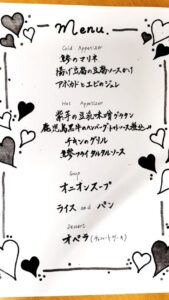 Menu.
Cold Appetizer
鯵のマリネ
揚げ豆腐の豆腐ソースかけ
アボカドとエビのジュレ
Hot Appetizer
里芋の豆乳味噌グラタン
鹿児島黒牛のハンバーグトマトソース煮込み
チキンのグリル
生鮭フライ タルタルソース
Soup
オニオンスープ
ライス and パン
Dessert
オペラ(チョコレートケーキ)